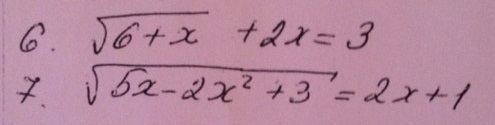 6. √(6+x) +2x=3
7. √(5x-2x²+3)=2x+1